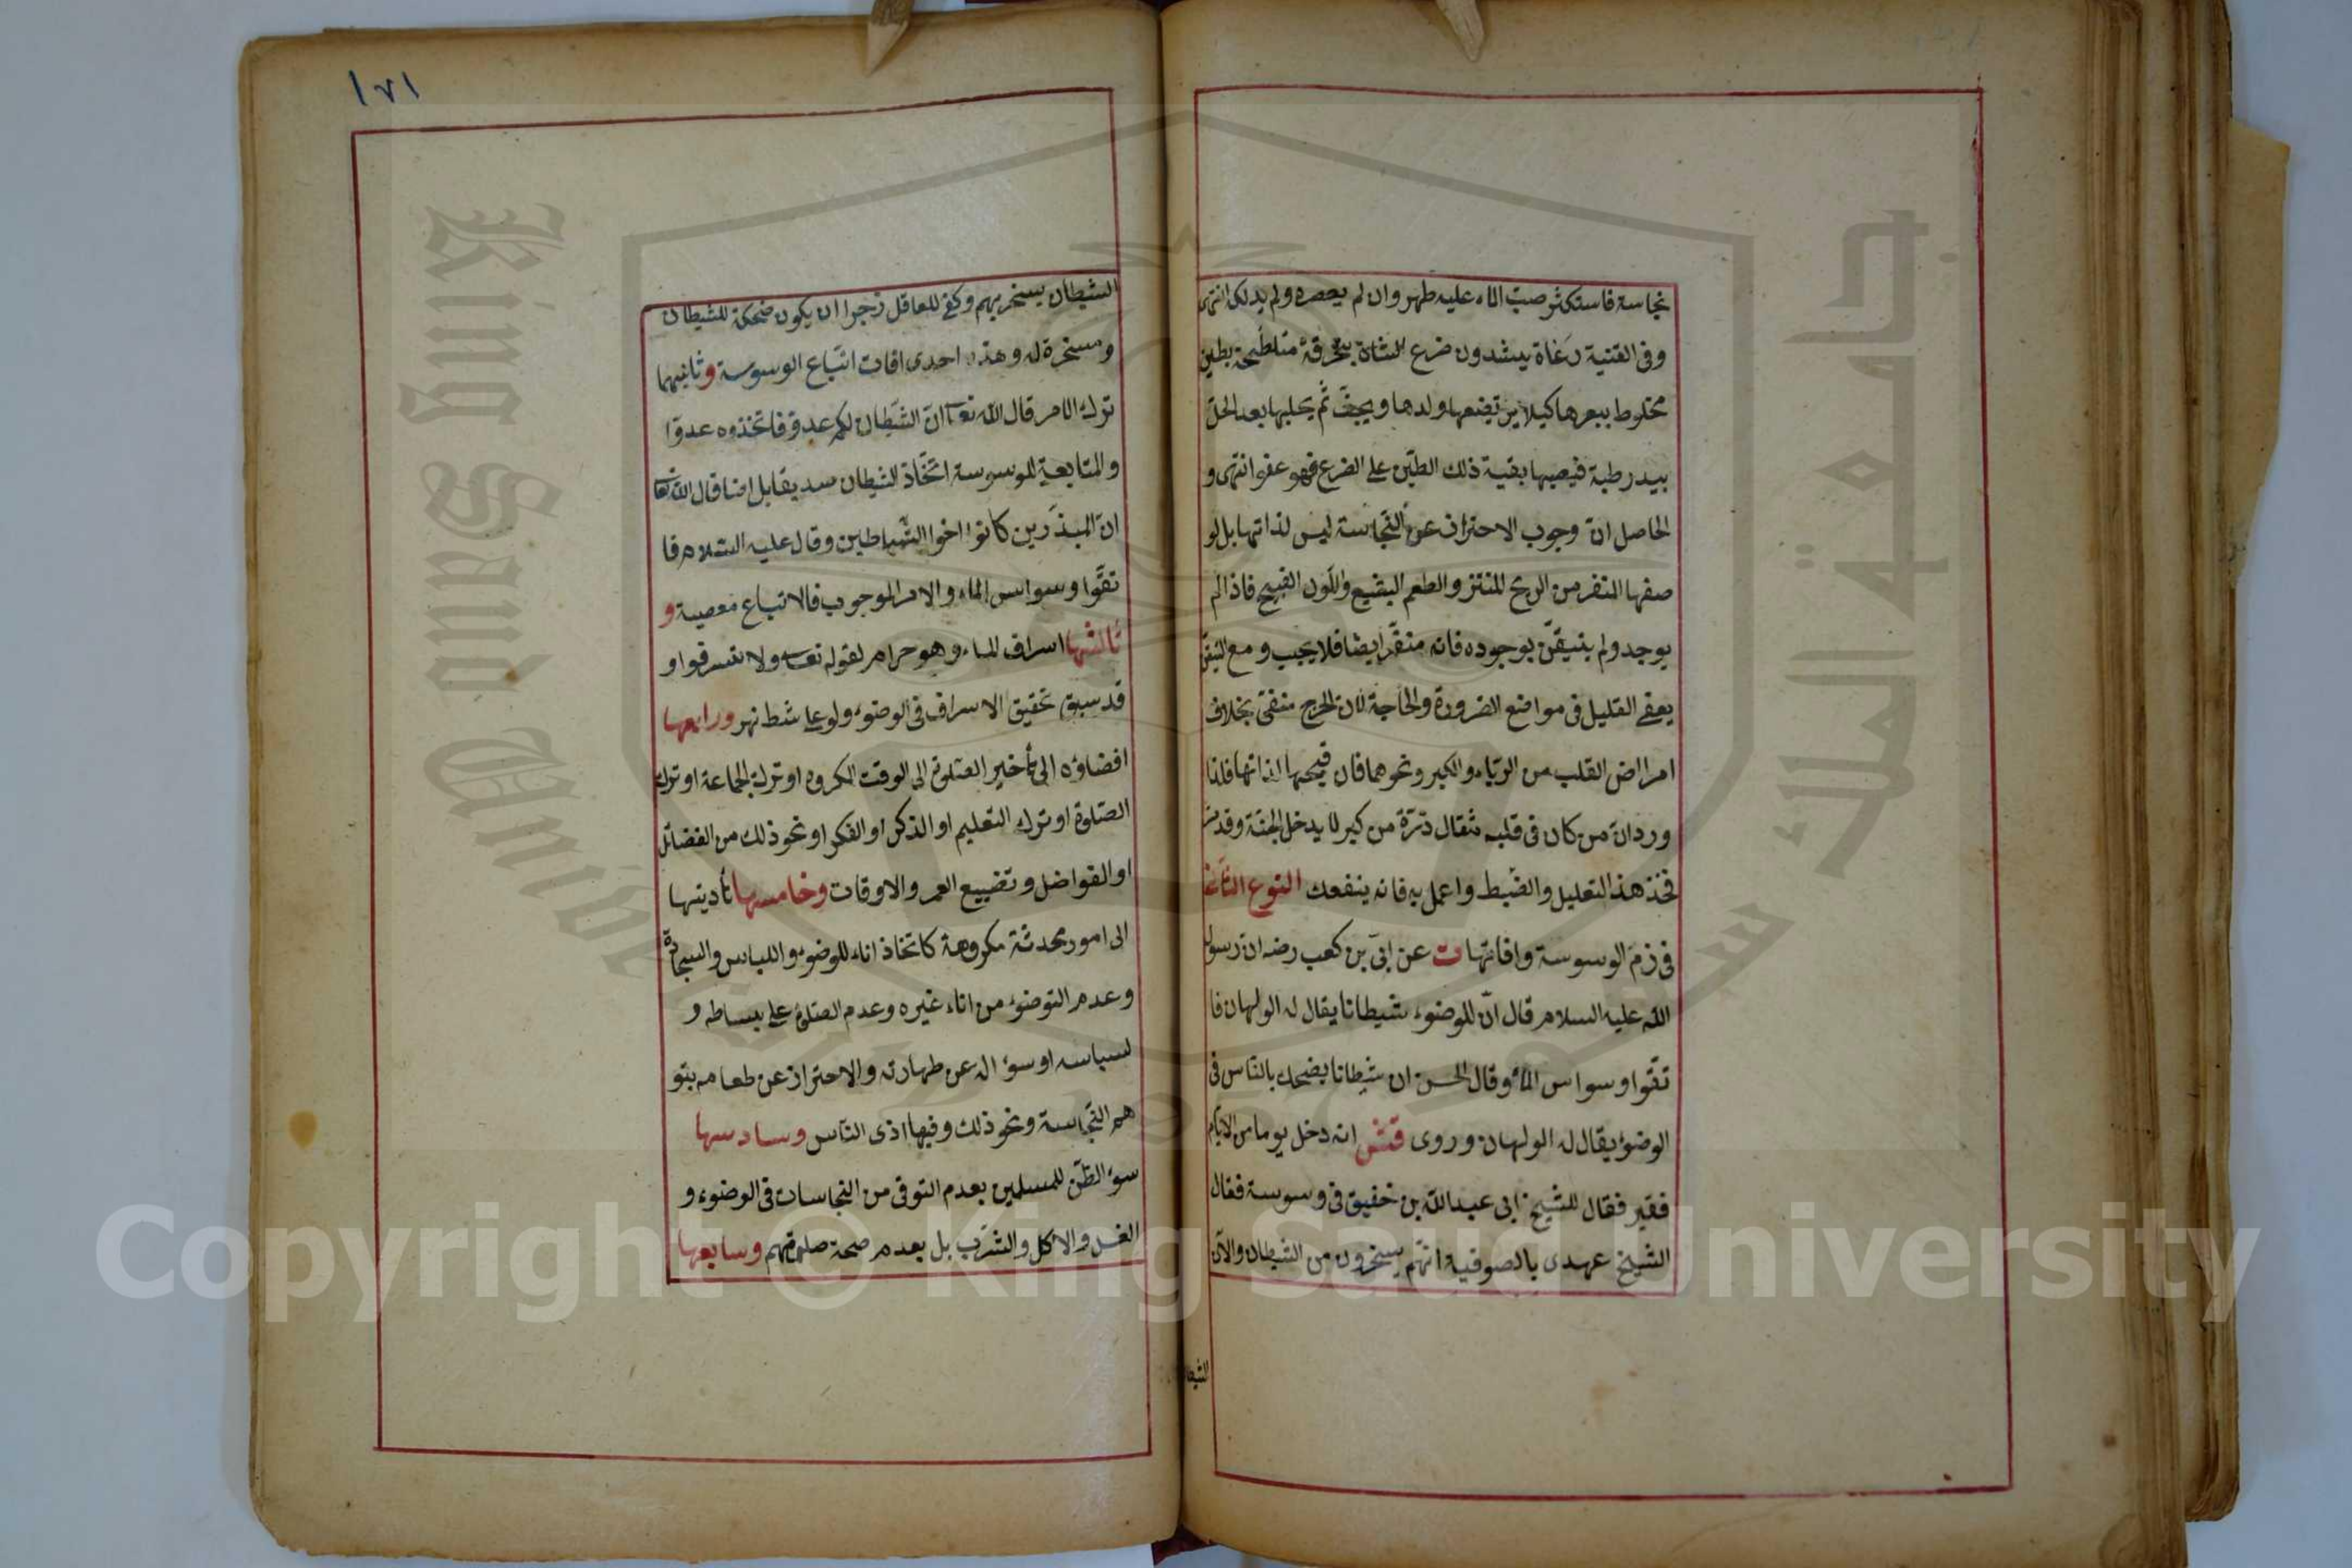 نجاسة فاستكثر صبّ الماء عليه طهر وان لم يعصره ولم يدلكه انتهى
وفى القنية رعاة يشدون ضرع الشاة بخرقة متلطخة بطين
مخلوط ببعرها كيلا يرتضعها ولدها ويجفّ ثم يحلبها بعد الحلّ
بيد رطبة فيصيبها بقية ذلك الطين على الضرع فهو عفو انتهى و
الحاصل ان وجوب الاحتراز عن النّجاسة ليس لذاتها بل لو
صفها المنفر من الريح المنتن والطعم البقيع واللّون القبيح فاذا لم
يوجد ولم يتيقّن بوجوده فانه منفّر ايضا فلا يجب و مع التيقّن
يعفى القليل فى مواضع الضرورة والحاجة لان الحرج منفىّ بخلاف
امراض القلب من الريّاء والكبر ونحوهما فان قبحها لذاتها فلذا
ورد ان من كان فى قلبه مثقال ذرّة من كبر لا يدخل الجنّة وقد
فخذ هذ التعليل والضّبط واعمل به فانه ينفعك النوع الثانى
فى ذمّ الوسوسة وافاتها ت عن ابىّ بن كعب رضه ان رسول
اللّه عليه السلام قال انّ للوضوء شيطانا يقال له الولهان فا
تقوا وسواس الماء وقال الحسن ان شيطانا يضحك بالنّاس فى
الوضوء يقال له الولهان وروى قش انه دخل يوما من الايّام
فقير فقال للشيخ ابى عبد اللّه بن خفيق فى وسوسة فقال
الشيخ عهدى بالصوفية انّهم يسخرون من الشيطان والان
الشيطا
١٧١
الشيطان يسخر بهم وكفى للعاقل زجرا ان يكون ضحكة للشيطان
ومسخرة له وهذه احدى افات اتّباع الوسوسة وثانيهما
ترك الامر قال اللّه تعا انّ الشّيطان لكم عدوّ فاتّخذوه عدوّا
والمتابعة للوسوسة اتّخاذ الشيطان سديقا بل اخا قال اللّه تعا
انّ المبذّرين كانوا اخوا الشّياطين وقال عليه السّلام فا
تقّوا وسواس الماء والامر للوجوب فالاتباع معصية و
ثالثها اسراف الماء وهو حرام لقوله تعا ولا تسرفوا و
قد سبق تحقيق الاسراف فى الوضوء ولو على شط نهر ورابعها
افضاؤه الى تأخير الصّلوة الى الوقت المكروه او ترك الجماعة او ترك
الصّلوة او ترك التعليم او الذكر او الفكر او نحو ذلك من الفضائل
او الفواضل وتضييع العمر والاوقات وخامسها تأديتها
الى امور محدثة مكروهة كاتخاذ اناء للوضوء واللباس والسجادة
وعدم التوضوء من اناء غيره وعدم الصّلوة على بساطه و
لسباسه او سؤاله عن طهارته والاحتراز عن طعامه بتو
هم النّجاسة ونحو ذلك وفيها اذى النّاس وسادسها
سوء الظّن للمسلمين بعدم التوقى من النجاسات فى الوضوء و
الغسل والاكل والشّرب بل بعدم صحة صلوتهم وسابعها
King Saud University
جامعة الملك سعود
Copyright © King Saud University